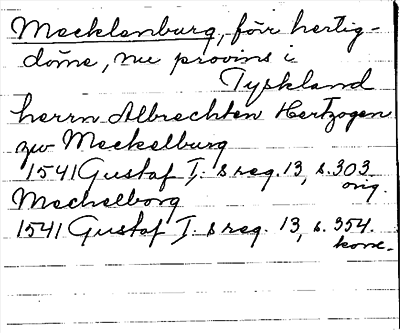 Mecklenburg, förr hertig-
döme, nu provins i
Tyskland
herrn Albrechten Hertzogen
zw Meckelburg
1541 Gustaf I:s reg. 13, s. 303.
orig.
Mechelborg
1541 Gustaf I:s reg. 13, s. 354.
konc.